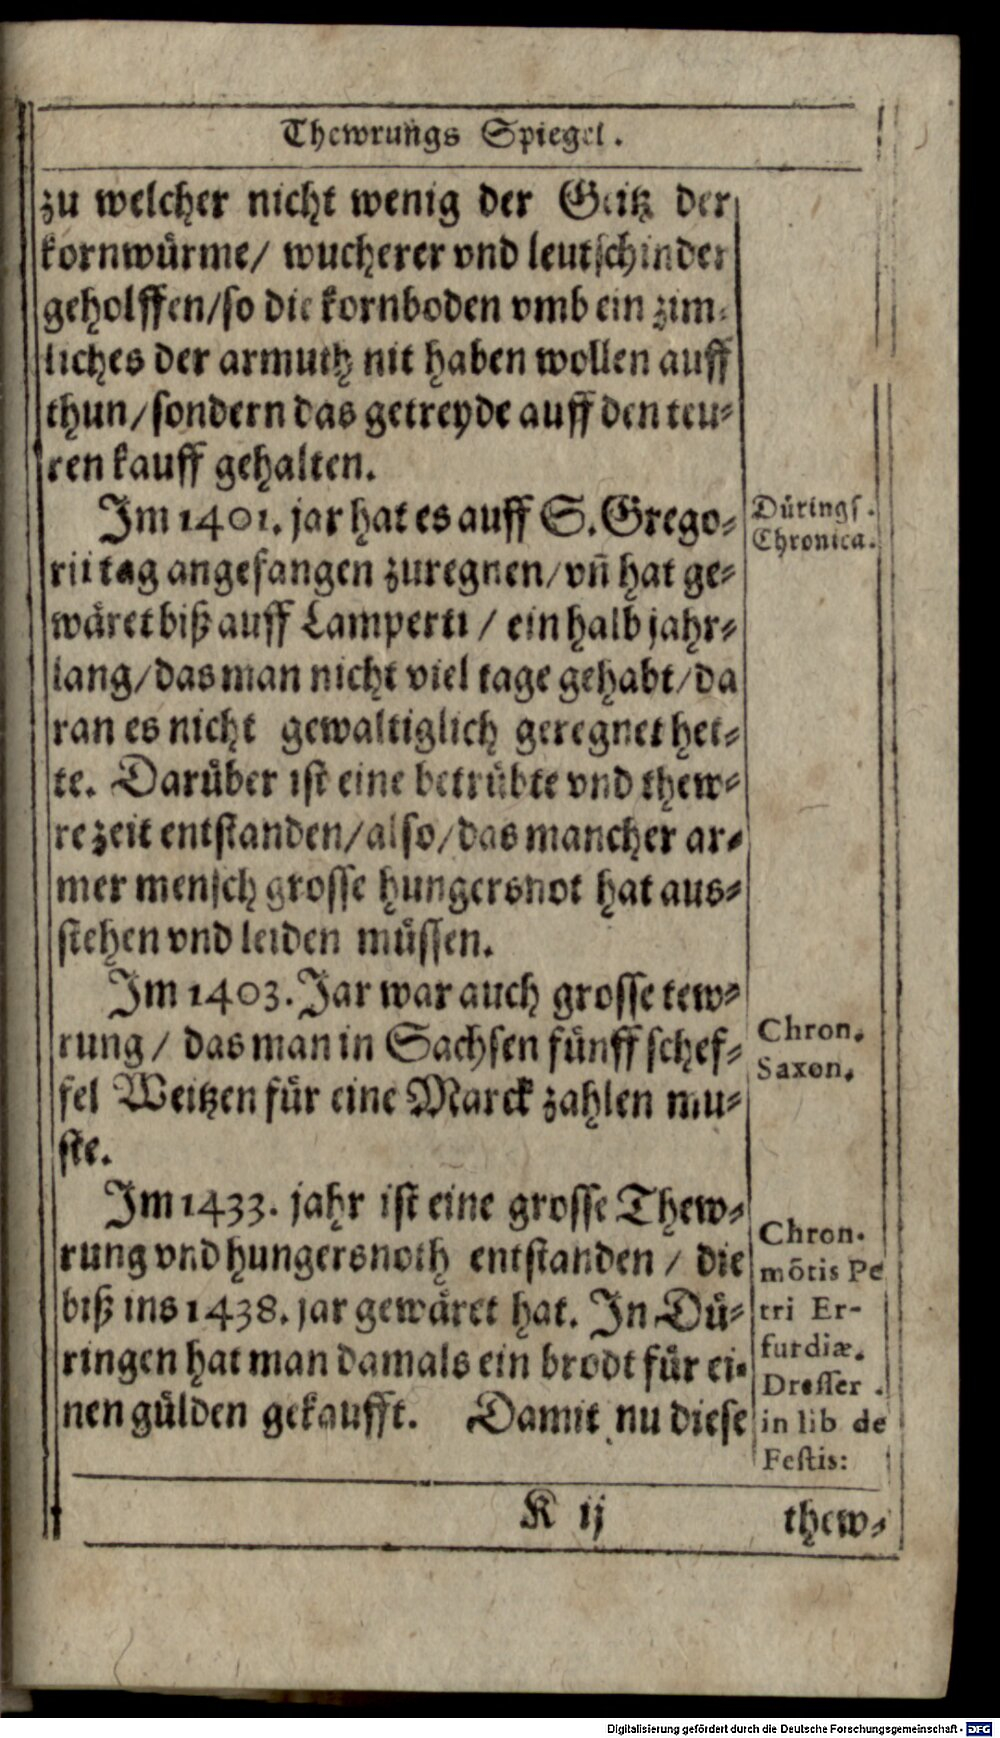 Thewrungs Spiegel.
zu welcher nicht wenig der Geitz der
kornwuͤrme/ wucherer vnd leutschinder
geholffen/so die kornboden vmb ein zim-
liches der armuth nit haben wollen auff
thun/sondern das getreyde auff den teu-
ren kauff gehalten.
Im 1401. jar hat es auff S. Grego-
rii tag angefangen zuregnen/vn̄ hat ge-
waͤret biß auff Lamperti / ein halb jahr-
lang/das man nicht viel tage gehabt/da
ran es nicht gewaltiglich geregnet het-
te. Daruͤber ist eine betruͤbte vnd thew-
re zeit entstanden/also/das mancher ar-
mer mensch grosse hungersnot hat aus-
stehen vnd leiden muͤssen.
Duͤrings.
Chronica.
Im 1403. Jar war auch grosse tew-
rung / das man in Sachsen fuͤnff schef-
fel Weitzen fuͤr eine Marck zahlen mu-
ste.
Chron.
Saxon.
Im 1433. jahr ist eine grosse Thew-
rung vnd hungersnoth entstanden / die
biß ins 1438. jar gewaͤret hat. In Duͤ-
ringen hat man damals ein brodt fuͤr ei-
nen guͤlden gekaufft. Damit nu diese
Chron.
mōtis Pe
tri Er-
furdiæ.
Dresser.
in lib de
Festis:
K ij
thew-
Digitalisierung gefördert durch die Deutsche Forschungsgemeinschaft - DFG